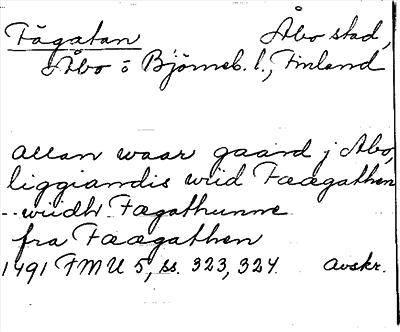 Fägatan Åbo stad,
Åbo o Björneb. l., Finland
allan waar gaard j Abo,
liggiandis wiid Fææagathen
-- wiidh Fægathunne
fra Fææagathen
1491 FMU 5, ss. 323, 324. avskr.